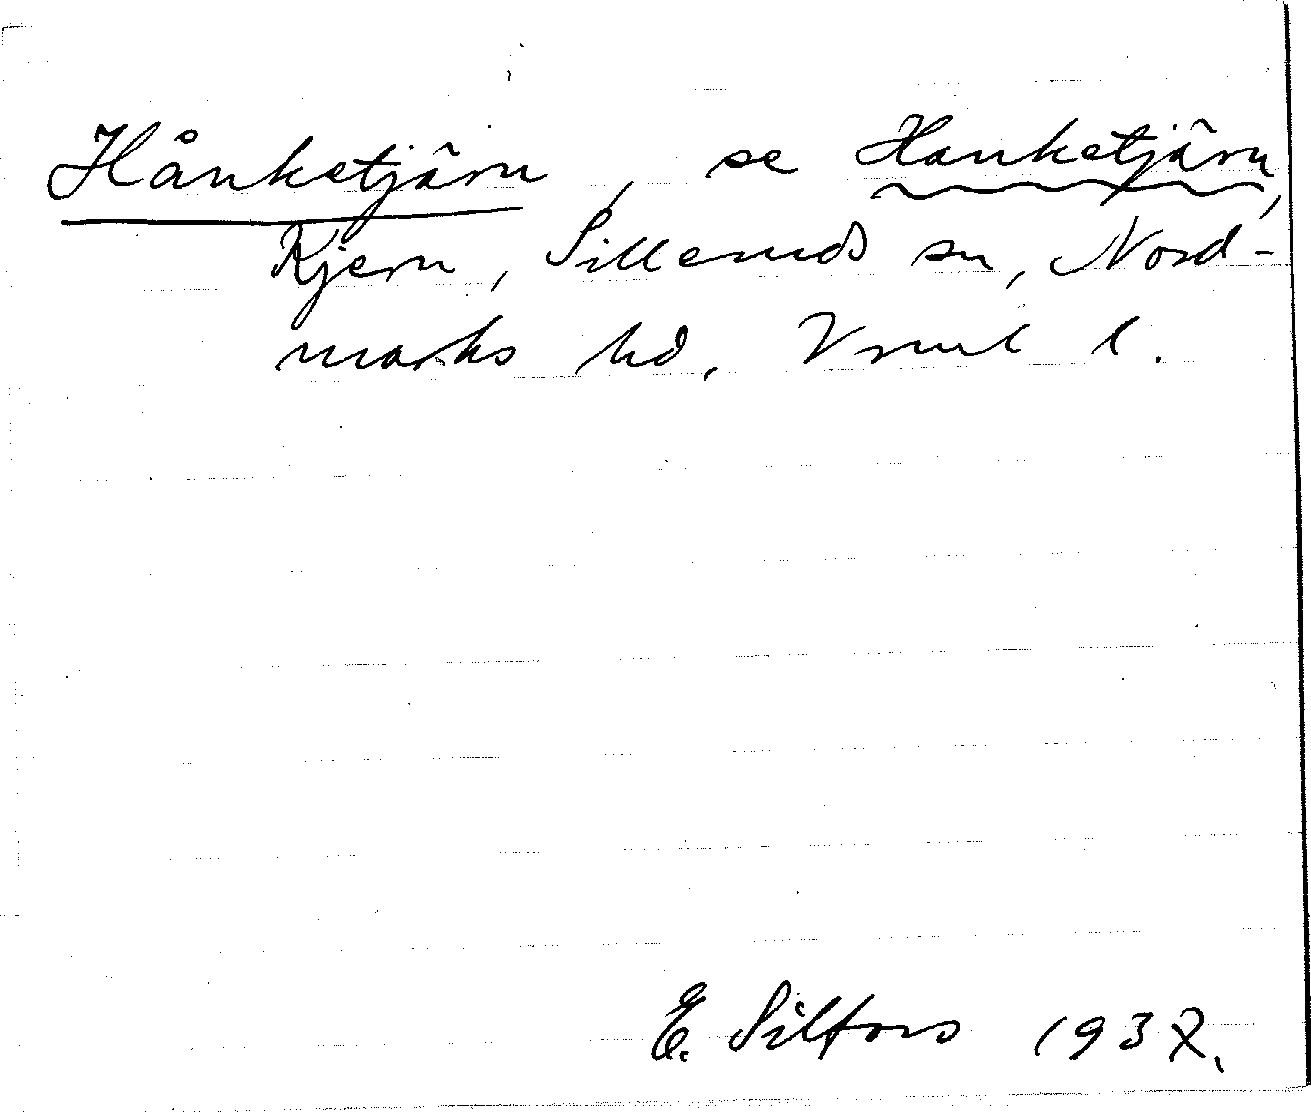 Hånketjärn, se Hanketjärn,
Kjern, Sillerud sn, Nord-
marks hd, Vrml l.
E. Silfors 1937.